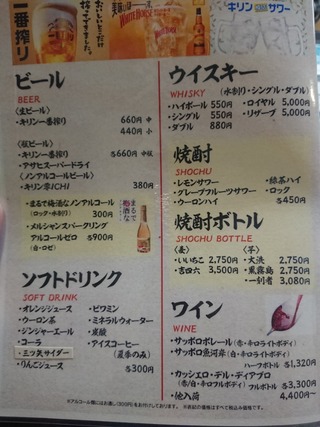 一番搾り
WHITE HORSE
キリン サワー
ビール
BEER
〈生ビール〉
・キリン一番搾り 660円 中
440円 小
〈瓶ビール〉
・キリン一番搾り 各660円 中瓶
・アサヒスーパードライ
〈ノンアルコールビール〉
・キリン零ICHI 380円
・まるで梅酒なノンアルコール
(ロック・水割り) 300円
・メルシャンスパークリング
アルコールゼロ 各900円
(白・ロゼ)
まるで梅酒な
ソフトドリンク
SOFT DRINK
・オレンジジュース
・ウーロン茶
・ジンジャーエール
・コーラ
・三ツ矢サイダー
・りんごジュース
・ビワミン
・ミネラルウォーター
・炭酸
・アイスコーヒー
(夏季のみ)
各300円
ウイスキー
WHISKY (水割り・シングル・ダブル)
・ハイボール 550円 ・ロイヤル 5,000円
・シングル 550円 ・リザーブ 5,000円
・ダブル 880円
焼酎
SHOCHU
・レモンサワー ・緑茶ハイ
・グレープフルーツサワー ・ロック
・ウーロンハイ 各450円
焼酎ボトル
SHOCHU BOTTLE
〈麦〉 〈芋〉
・いいちこ 2,750円 ・大洗 2,750円
・吉四六 3,500円 ・黒霧島 2,750円
・一刻者 3,080円
ワイン
WINE
・サッポロポレール(赤・辛口ライトボディ)
・サッポロ魚河岸(白・辛口ライトボディ)
ハーフボトル 各1,320円
・カッシェロ・デル・ディアブロ
(赤/白・辛口フルボディ) フルボトル 各3,300円
・他入荷 4,400円～